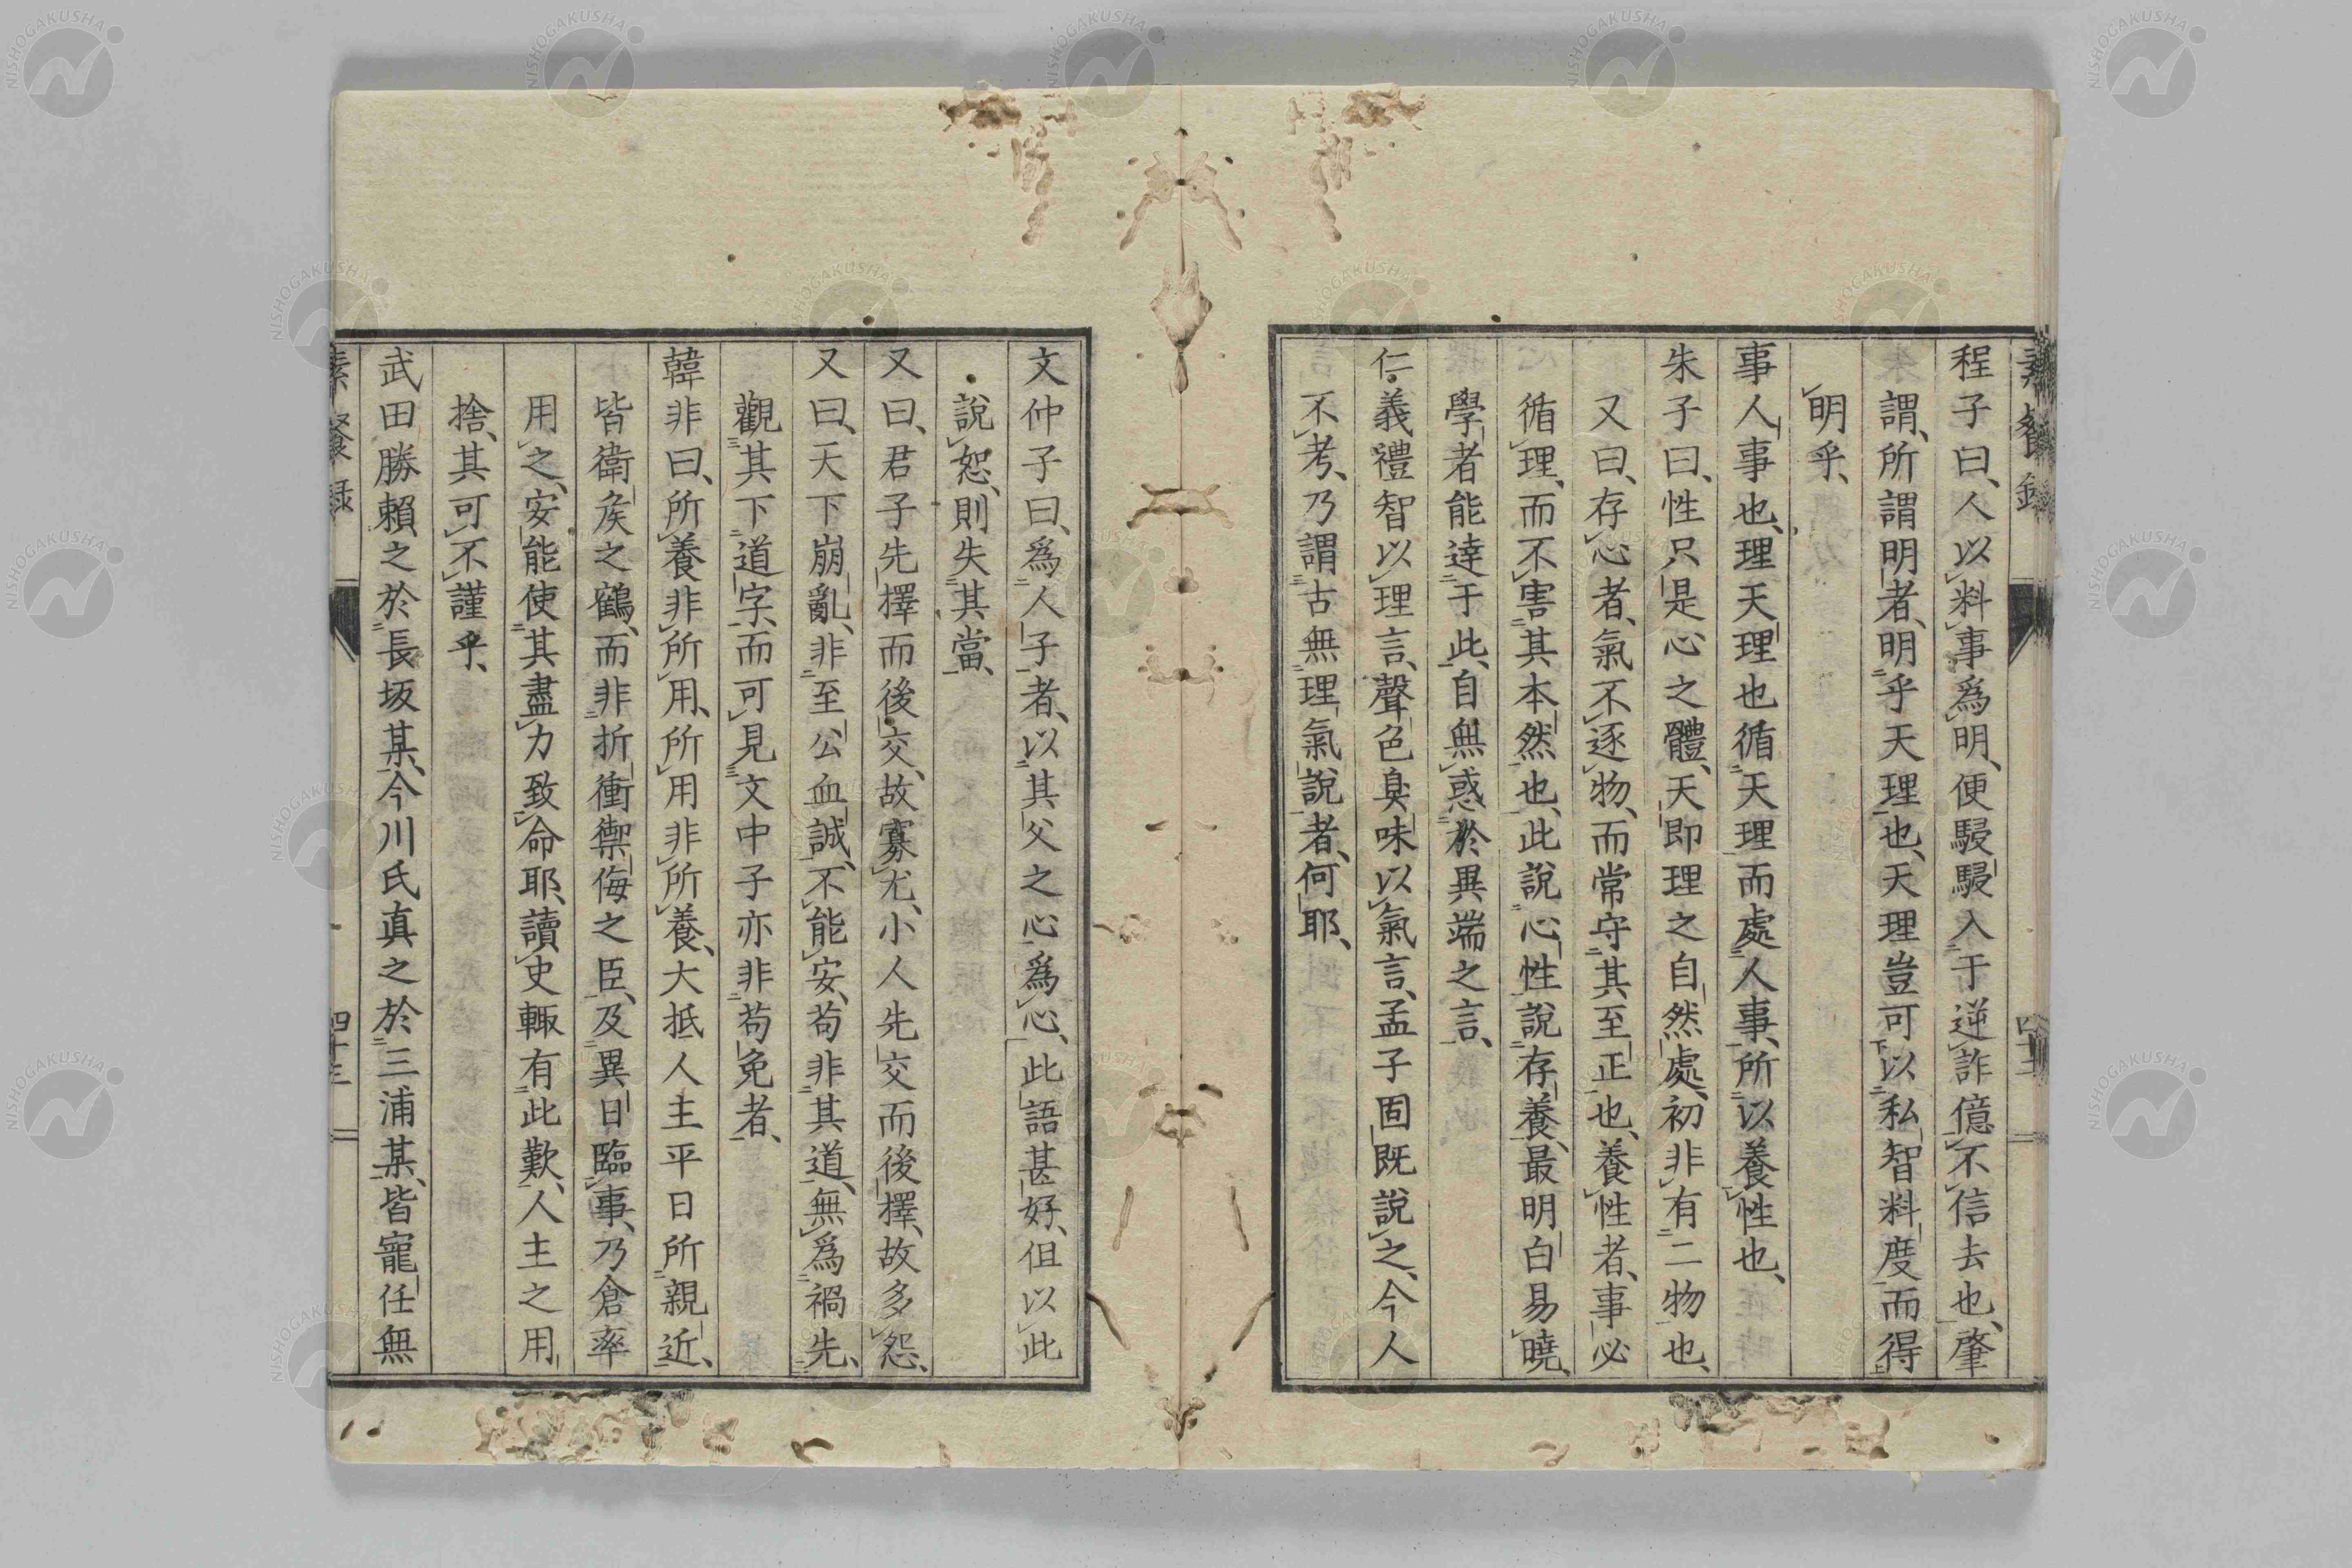 素餐錄
四十二
程子曰、人以料事爲明、便駸駸入于逆詐億不信去也、肇
謂、所謂明者、明乎天理也、天理豈可以私智料度而得
明乎、
事人事也、理天理也循天理而處人事、所以養性也、
朱子曰、性只是心之體、天即理之自然處、初非有二物也、
又曰、存心者、氣不逐物、而常守其至正也、養性者、事必
循理、而不害其本然也、此說心性說存養、最明白易曉、
學者能達于此、自無惑於異端之言、
仁義禮智以理言、聲色臭味以氣言、孟子固既說之、今人
不考、乃謂古無理氣說者、何耶、
文仲子曰、爲人子者、以其父之心爲心、此語甚好、但以此
說恕、則失其當、
又曰、君子先擇而後交、故寡尤、小人先交而後擇、故多怨、
又曰、天下崩亂、非至公血誠、不能安、苟非其道、無爲禍先、
觀其下道字、而可見文中子亦非苟免者、
韓非曰、所養非所用、所用非所養、大抵人主平日所親近、
皆衛侯之鶴、而非折衝禦侮之臣、及異日臨事、乃倉率
用之、安能使其盡力致命耶、讀史輙有此歎、人主之用
捨、其可不謹乎、
武田勝賴之於長坂某、今川氏真之於三浦某、皆寵任無
素餐録
四十三